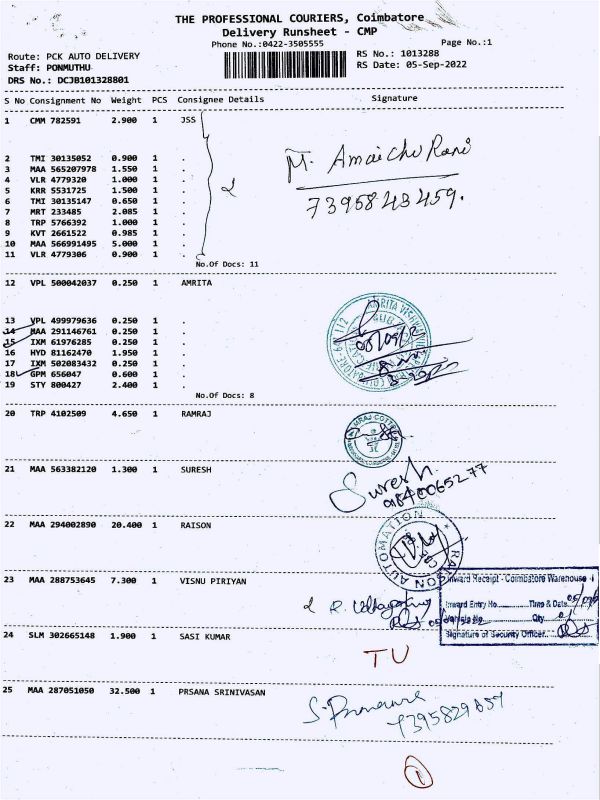 THE PROFESSIONAL COURIERS, Coimbatore
Delivery Runsheet - CMP
Phone No.:0422-3505555
Page No.:1
Route: PCK AUTO DELIVERY
RS No.: 1013288
Staff: PONMUTHU
RS Date: 05-Sep-2022
DRS No.: DCJB101328801
S No Consignment No Weight PCS Consignee Details Signature
1 CMM 782591 2.900 1 JSS
2 TMI 30135052 0.900 1 .
3 MAA 565207978 1.550 1 .
4 VLR 4779320 1.000 1 .
5 KRR 5531725 1.500 1 .
6 TMI 30135147 0.650 1 .
7 MRT 233485 2.085 1 .
8 TRP 5766392 1.000 1 .
9 KVT 2661522 0.985 1 .
10 MAA 566991495 5.000 1 .
11 VLR 4779306 0.900 1 .
M. Amaichu Rani
7395843459.
No.Of Docs: 11
12 VPL 500042037 0.250 1 AMRITA
13 VPL 499979636 0.250 1 .
14 MAA 291146761 0.250 1 .
15 IXM 61976285 0.250 1 .
16 HYD 81162470 1.950 1 .
17 IXM 502083432 0.250 1 .
18 GPM 656047 0.600 1 .
19 STY 800427 2.400 1 .
No.Of Docs: 8
20 TRP 4102509 4.650 1 RAMRAJ
21 MAA 563382120 1.300 1 SURESH
Suresh
22 MAA 294002890 20.400 1 RAISON
RAISON AUTOMATION
23 MAA 288753645 7.300 1 VISNU PIRIYAN
Inward Receipt - Coimbatore Warehouse
Inward Entry No. Time & Date
Vehicle No. Qty.
Signature of Security Officer
24 SLM 302665148 1.900 1 SASI KUMAR
TU
25 MAA 287051050 32.500 1 PRSANA SRINIVASAN